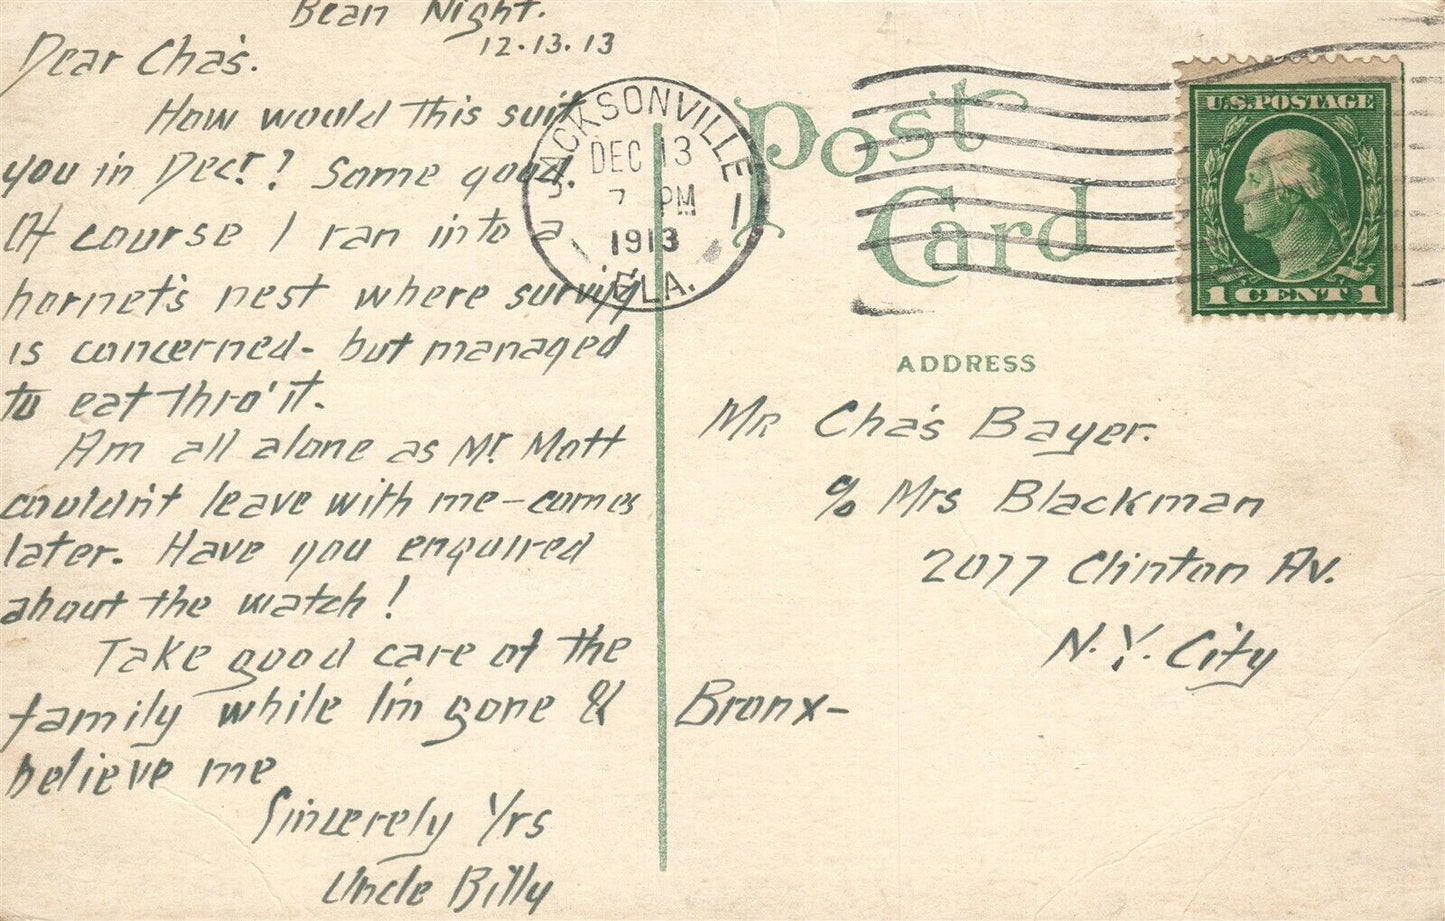 Bean Night.
12.13.13
Dear Cha's.
How would this suit
you in Decr.? Some good.
Of course I ran into a
hornet's nest where
is concerned - but managed
to eat thro' it.
Am all alone as Mr. Mott
couldn't leave with me - comes
later. Have you enquired
about the watch!
Take good care of the
family while I'm gone &
believe me
Sincerely Yrs
Uncle Billy
JACKSONVILLE
DEC 13
7 PM
1913
FLA.
Post
Card
U.S. POSTAGE
1 CENT 1
ADDRESS
Mr Cha's Bayer.
c/o Mrs Blackman
2077 Clinton Av.
N.Y. City
Bronx-